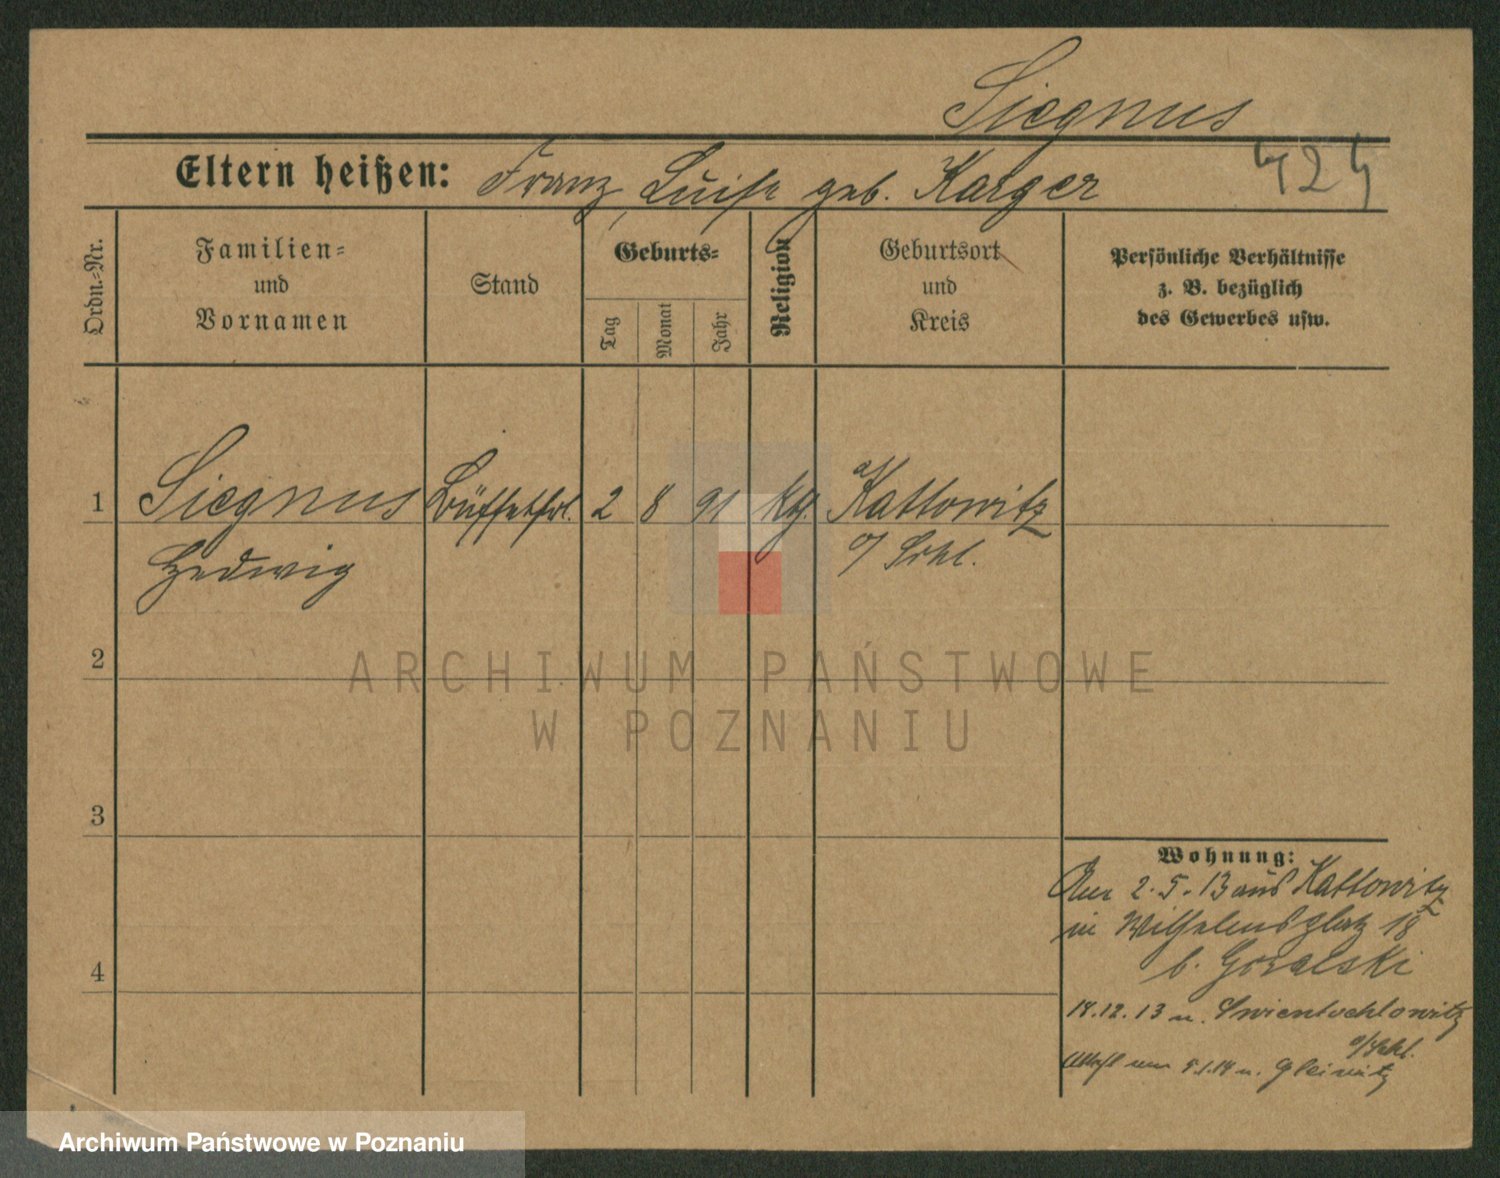 Siegnus
Eltern heißen: Franz, Luise geb. Karger
424
Ordn.-Nr.
Familien-
und
Vornamen
Stand
Geburts-
Tag
Monat
Jahr
Religion
Geburtsort
und
Kreis
Persönliche Verhältnisse
z. B. bezüglich
des Gewerbes usw.
1
Siegnus
Büffetfrl.
2
8
91
kth.
Kattowitz
Hedwig
o/ Schl.
2
ARCHIWUM PAŃSTWOWE
W POZNANIU
3
Wohnung:
Am 2.5.13 aus Kattowitz
in Wilhelmsplatz 18
b. Goralski
4
18.12.13 n. Swientochlowitz
o/Schl.
5.1.14 n. Gleiwitz
Archiwum Państwowe w Poznaniu